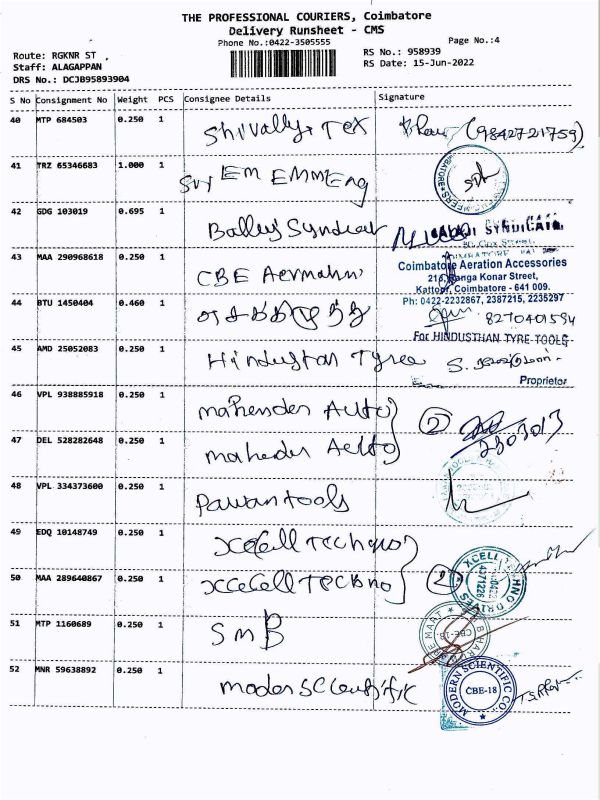 THE PROFESSIONAL COURIERS, Coimbatore
Delivery Runsheet - CMS
Phone No.:0422-3505555
Page No.:4
Route: RGKNR ST ,
RS No.: 958939
Staff: ALAGAPPAN
RS Date: 15-Jun-2022
DRS No.: DCJB95893904
S No Consignment No Weight PCS Consignee Details Signature
40 MTP 684503 0.250 1 Shivally Tex (9842721759)
41 TRZ 65346683 1.000 1 Sri EM EMM Eng
42 GDG 103019 0.695 1 SYNDICATE
43 MAA 290968618 0.250 1 CBE
Coimbatore Aeration Accessories
Ranga Konar Street,
Kattoor, Coimbatore - 641 009.
Ph: 0422-2232867, 2387215, 2235297
44 BTU 1450404 0.460 1 8270401594
For HINDUSTHAN TYRE TOOLS
45 AMD 25052083 0.250 1 Hindustan Tyree S.
Proprietor
46 VPL 938885918 0.250 1 mahender Auto
2
47 DEL 528282648 0.250 1 mahender Aeito
48 VPL 334373600 0.250 1 Pawan tools
49 EDQ 10148749 0.250 1
50 MAA 289640867 0.250 1 2
XCELL TECHNO DRIVES
51 MTP 1160689 0.250 1 SMB
CBE-18
52 MNR 59638892 0.250 1 moder Scientific
MODERN SCIENTIFIC CO.
CBE-18